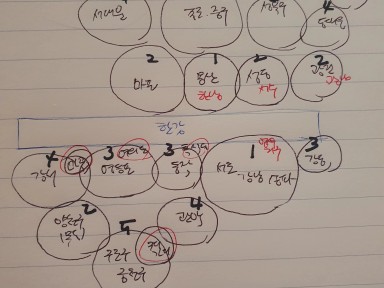 서대문
종로.중구
성북구
4
동대문
2
마포
1
용산
한남
2
성동
성수
2
광진
한강
4
강서
마곡
3
영등포
여의도
3
동작
흑석
1
서초
강남
3
강동
2
양천구
(목동)
4
관악
5
구로구
금천구